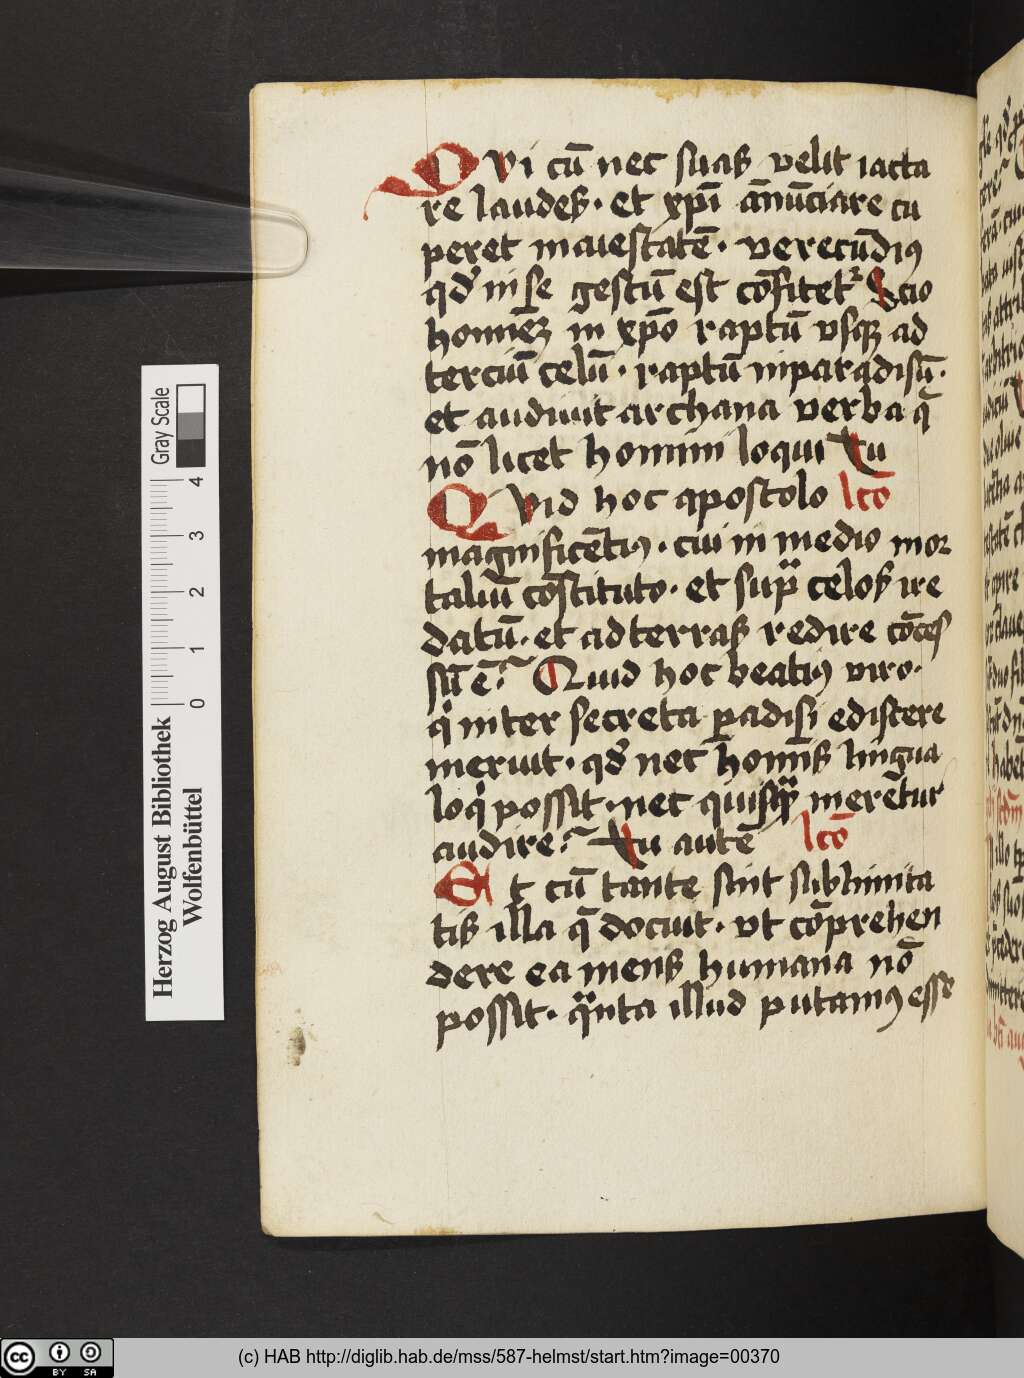 Qvi cū nec suas velit iacta
re laudes · et xpī ānūciare cu
peret maiestatē · verecūdiꝰ
qd̛ in se gestū est cōfitetᷣ Scio
hominēꝫ in xp̄o raptū vsqꝫ ad
terciū celū · raptū in paradisū ·
et audiuit archana verba q̄
nō licet homini loqui Tu
Qvid hoc apostolo lcō
magnificētiꝰ · cui in medio mor
taliū cōstituto · et supͣ celos ire
datū · et ad terras redire cōces
sū ē? Quid hoc beatiꝰ viro ·
qͥ inter secreta ꝑadisi ediscere
meruit · qd̛ nec hoīnis lingua
loqͥ possit · nec quisqͣꝫ merētur
audire? Tu autē lcō
Et cū tante sint sublimita
tis illa q̄ docuit · vt cōprehen
dere ea mens humana nō
possit · qͣnta illud putamꝰ esse
Herzog August Bibliothek
Wolfenbüttel
0 1 2 3 4
Gray Scale
(c) HAB http://diglib.hab.de/mss/587-helmst/start.htm?image=00370
cc BY SA